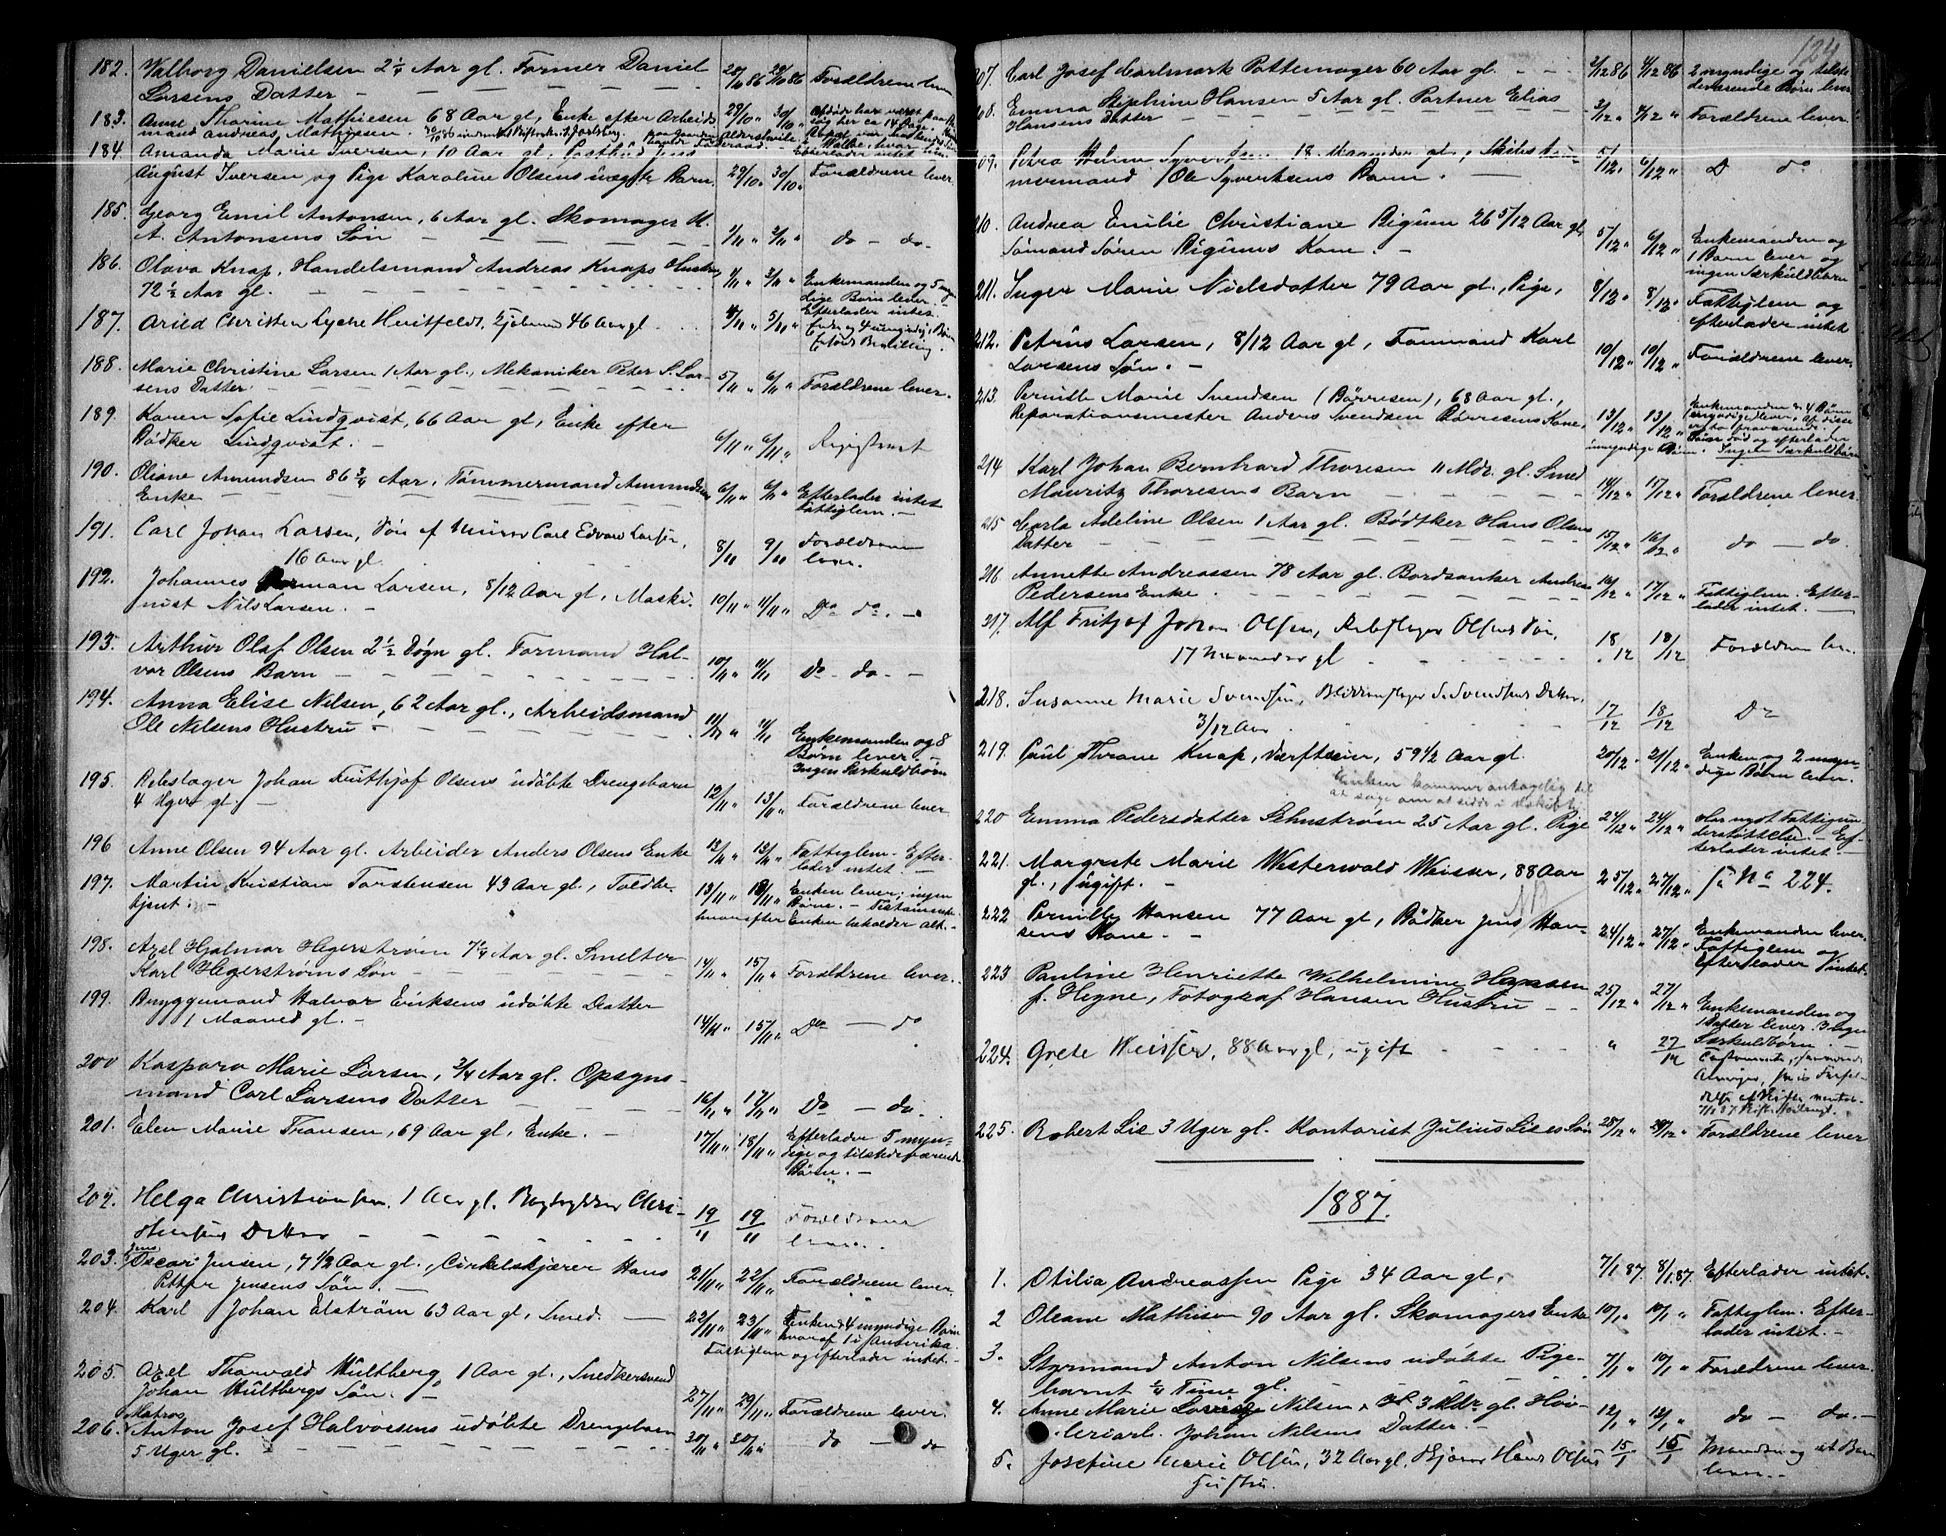 182. Valborg Danielsen 2 1/4 Aar gl. Former Daniel 28/10 86 29/10 86 Forældrene lever
Larsens Datter
183. Anne Thorine Mathiesen 68 Aar gl, Enke efter Arbeids 29/10 " 30/10 "
mand Andreas Mathiesen.
184. Amanda Marie Iversen, 10 Aar gl,
August Iversen og Pige Karoline Olsens uægte Barn. 29/10 " 30/10 " Forældrene lever.
185. Georg Emil Antonsen, 6 Aar gl. Skomager M.
A. Antonsens Søn 1/11 " 2/11 " do - do.
186. Olava Knap, Handelsmand Andreas Knaps Hustru, 1/11 " 3/11 " Enkemanden og 5 myn
72 1/2 Aar gl. dige Børn lever.
187. Arild Christen Lycke Huitfeldt, 46 Aar gl 4/11 " 5/11 " Efterlader intet.
188. Marie Christine Larsen 1 Aar gl., Mekaniker Peter S. Lar-
sens Datter 5/11 " 6/11 " Forældrene lever.
189. Karen Sofie Lindqvist, 66 Aar gl, Enke efter
Bødker Lindqvist. 6/11 " 6/11 " Registreret
190. Oliane Amundsen 86 3/4 Aar, Tømmermand Amundsens
Enke 6/11 " 6/11 " Efterlader intet
Fattiglem.
191. Carl Johan Larsen, Søn af Murer Carl Edvard Larsen,
16 Aar gl. 8/11 9/11 Forældrene
lever.
192. Johannes Larsen, 8/12 Aar gl, Maski-
nist Nils Larsen. 10/11 " 11/11 " Do do.
193. Arthur Olaf Olsen 2 1/2 Døgn gl. Formand Hal-
vor Olsens Barn 10/11 " 11/11 Do - do -
194. Anna Elise Nilsen, 62 Aar gl., Arbeidsmand
Ole Nilsens Hustru 11/11 " 11/11 Enkemanden og 8
Børn lever.
Ingen Særkuldbørn
195. Rebslager Johan Frithjof Olsens udøbte Drengebarn
4 Uger gl. 12/11 " 13/11 " Forældrene lever
196 Anne Olsen 94 Aar gl. Arbeider Anders Olsens Enke 12/11 " 13/11 " Fattiglem. Efter-
lader intet
197. Martin Kristian Torstensen 43 Aar gl., Toldbe- 13/11 " 13/11 " Enken lever; ingen
tjent. Børn. - Testamente
hvorefter Enken beholder alt.
198. Axel Hjalmar Hegerstrøm 7 1/4 Aar gl. Smelter
Karl Hegerstrøms Søn 14/11 " 15/11 " Forældrene lever.
199. Bryggemand Halvor Eriksens udøbte Datter
1 Maaned gl. 14/11 " 15/11 " Do - do
200 Kaspara Marie Larsen, 3/4 Aar gl. Opsyns-
mand Carl Larsens Datter 16/11 " 17/11 " Do - do.
201. Elen Marie Fransen, 69 Aar gl, Enke. 17/11 " 18/11 " Efterlader 5 myn-
dige og tilstedeværende
Børn.
202. Helga Christiansen. 1 Aar gl. Bogtrykker Chri-
stiansens Datter 19/11 19/11 Forældrene
lever.
203. Oscar Jensen, 7 1/2 Aar gl., Cirkelskjærer Hans
Petter Jensens Søn. 21/11 " 22/11 " Forældrene lever.
204. Karl Johan Elstrøm 63 Aar gl, Smed. 22/11 " 23/11 " Enken & 4 myndige Børn
hvoraf 1 i Amerika.
Fattiglem og efterlader intet.
205. Axel Thorvald Hultberg, 1 Aar gl., Snedkersvend
Johan Hultbergs Søn. 27/11 " 29/11 " Forældrene lever.
206. Matros
Anton Josef Halvorsens udøbte Drengebarn
5 Uger gl. 30/11 " 30/11 " do - do
124
207. Carl Josef Carlmark Pottemager 60 Aar gl. 2/12 86 4/12 86 2 myndige og tilste
deværende Børn lever
208. Emma Stephine Hansen 5 Aar gl. Portner Elias
Hansens Datter 3/12 " 4/12 " Forældrene lever.
209. Petra Syvertsen 18 Maaneder gl,
mermand Ole Syvertsens Barn. 5/12 " 6/12 " Do do.
210. Andrea Emilie Christiane Bigum 26 5/12 Aar gl,
Sømand Søren Bigums Kone. 5/12 " 6/12 " Enkemanden og
1 Barn lever og
ingen Særkuldbørn
211. Inger Marie Nielsdatter 79 Aar gl., Pige, 8/12 " 8/12 " Fattiglem og
efterlader intet
212. Petrus Larsen, 8/12 Aar gl, Formand Karl
Larsens Søn. 10/12 " 10/12 " Forældrene lever.
213. Pernille Marie Svendsen (Børresen), 68 Aar gl.,
Reparationsmester Anders Svendsen Børresens Kone, 13/12 " 13/12 " Enkemanden & 4 Børn
umyndige Børn. Ingen Særkuldbørn
214 Karl Johan Bernhard Thoresen 11 Mdr. gl. Smed
Mauritz Thoresens Barn 14/12 " 17/12 " Forældrene lever.
215 Carla Adeline Olsen 1 Aar gl. Bødtker Hans Olsens
Datter 15/12 " 16/12 " do - do.
216 Annette Andreassen 78 Aar gl. Bordsanker Andreas
Pedersens Enke. 16/12 " 17/12 " Fattiglem. Efter-
lader intet.
217. Alf Fritjof Johan Olsen, Rebslager Olsens Søn,
17 Maaneder gl 18/12 18/12 Forældrene lever.
218. Susanne Marie Svendsen, Blikkenslager S. Svendsens Datter,
3/12 Aar 17/12 18/12 Do
219. Poul Thrane Knap, Værftseier, 59 1/2 Aar gl. 20/12 " 21/12 " Enken og 2 myn-
dige Børn lever.
Enken kommer antagelig til
at søge om at sidde i uskiftet
220 Emma Pedersdatter Sehnstrøm 25 Aar gl. Pige 24/12 " 24/12 " Har nydt Fattigun
derstøttelse - Ef-
terlader intet.
221. Margrete Marie Westerwald Weisser, 88 Aar
gl., Ugift. 25/12 " 27/12 " No 224.
222 Pernille Hansen 77 Aar gl, Bødker Jens Han-
sens Kone. 24/12 " 27/12 " Enkemanden lever.
Fattiglem og
Efterlader intet.
223 Pauline Henriette Wilhelmine Hanssen
f. Hegne, Fotograf Hansen Hustru 25/12 " 27/12 " Enkemanden og
1 Datter lever. Ingen
Særkuldbørn.
224. Grete Weisser, 88 Aar gl, ugift " 27/12
225. Robert Lie 3 Uger gl. Kontorist Julius Lies Søn 28/12 " 29/12 " Forældrene lever
1887.
1. Otilia Andreassen Pige 34 Aar gl, 7/1 87. 8/1 87. Efterlader intet.
2 Oleane Mathisen 90 Aar gl. Skomagers Enke 10/1 " 10/1 " Fattiglem. Efter-
lader intet.
3. Styrmand Anton Nilsens udøbte Pige-
barnt 1/4 Time gl. 7/1 " 10/1 " Forældrene lever.
4. Anne Marie Lovise Nilsen, 3 Mdr gl. Høv-
leriarb. Johan Nilsens Datter. 12/1 " 12/1 " do - do.
5. Josefine Marie Olsen, 32 Aar gl. Hans Olsens 15/1 15/1 Manden og et Barn
Hustru. lever.